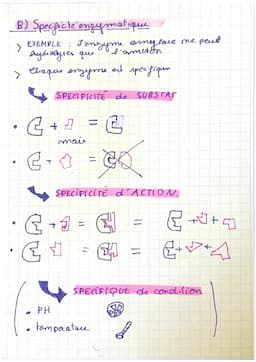 B) Spécificité enzymatique
> EXEMPLE : l'enzyme amylase ne peut
hydrolyser que l'amidon
> Chaque enzyme est spécifique
SPECIFICITÉ de SUBSTAT
+ =
mais
+ =
SPECIFICITÉ d'ACTION
+ = = + +
= = + +
SPECIFIQUE de condition
• PH
• température